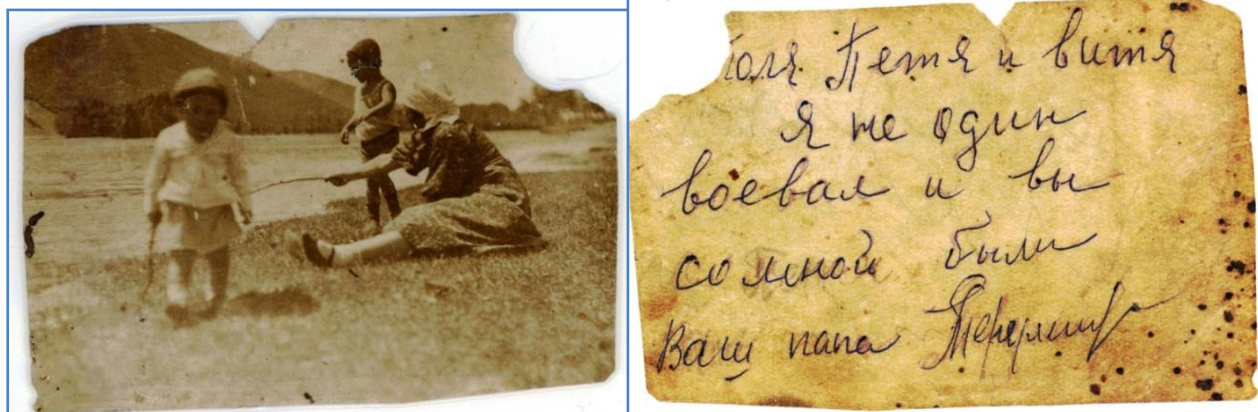 оля Петя и витя
я не один
воевал и вы
со мной были
Ваш папа